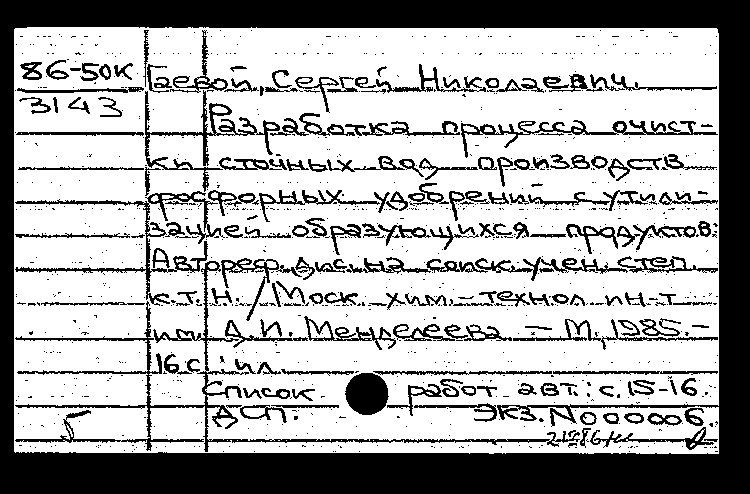 86-50к Гаевой, Сергей Николаевич.
3143
Разработка процесса очист-
ки сточных вод производств
фосфорных удобрений с утили-
зацией образующихся продуктов:
Автореф. дис. на соиск. учен. степ.
к.т.н. / Моск. хим.-технол ин-т
им. Д.И. Менделеева. – М., 1985.-
16 с : ил.
Список работ авт.: с. 15-16.
ДСП. Экз. N000006.